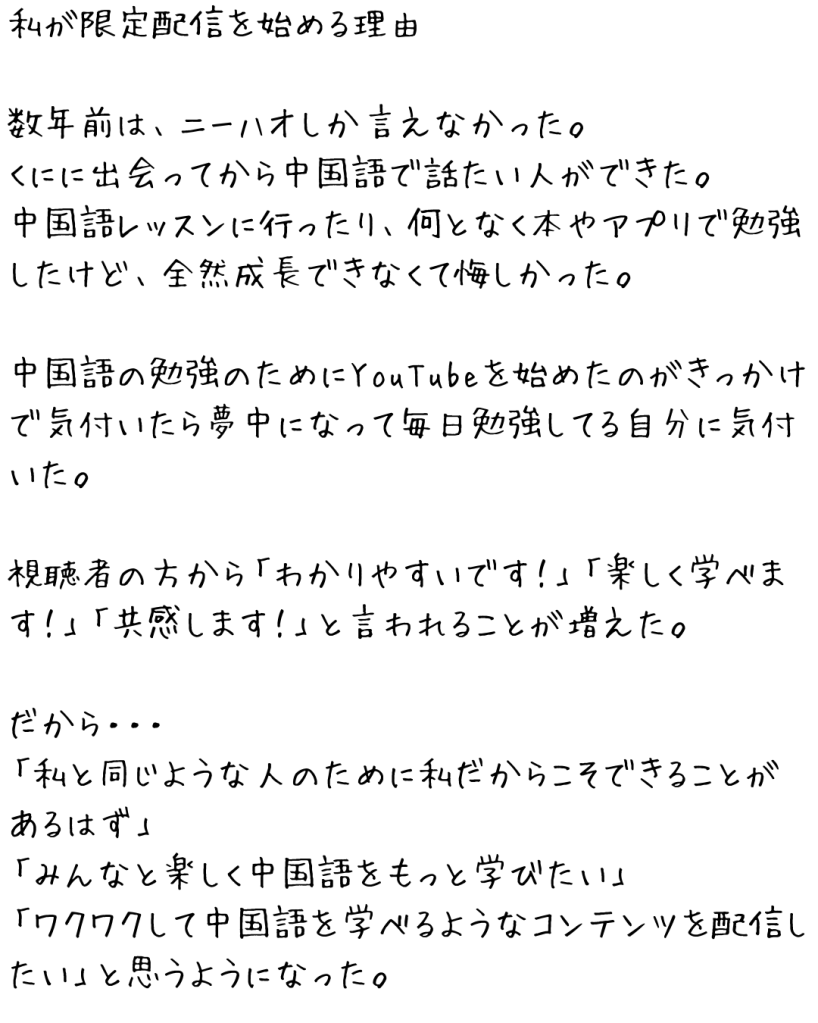 私が限定配信を始める理由
数年前は、ニーハオしか言えなかった。
くにに出会ってから中国語で話たい人ができた。
中国語レッスンに行ったり、何となく本やアプリで勉強
したけど、全然成長できなくて悔しかった。
中国語の勉強のためにYouTubeを始めたのがきっかけ
で気付いたら夢中になって毎日勉強してる自分に気付
いた。
視聴者の方から「わかりやすいです!」「楽しく学べま
す!」「共感します!」と言われることが増えた。
だから・・・
「私と同じような人のために私だからこそできることが
あるはず」
「みんなと楽しく中国語をもっと学びたい」
「ワクワクして中国語を学べるようなコンテンツを配信し
たい」と思うようになった。